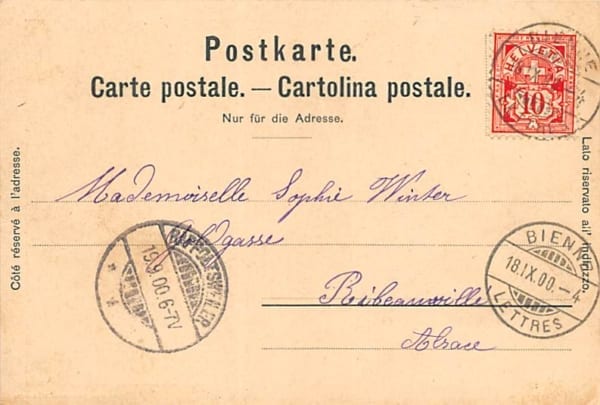 Postkarte.
Carte postale. — Cartolina postale.
Nur für die Adresse.
HELVETIA
10
Côté réservé à l'adresse.
Lato riservato all' indirizzo.
Mademoiselle Sophie Winter
BIENNE
18.IX.00.–4
LETTRES
RAPPOLTSWEILER
19.9.00.6-7V
Ribeauville
Alsace